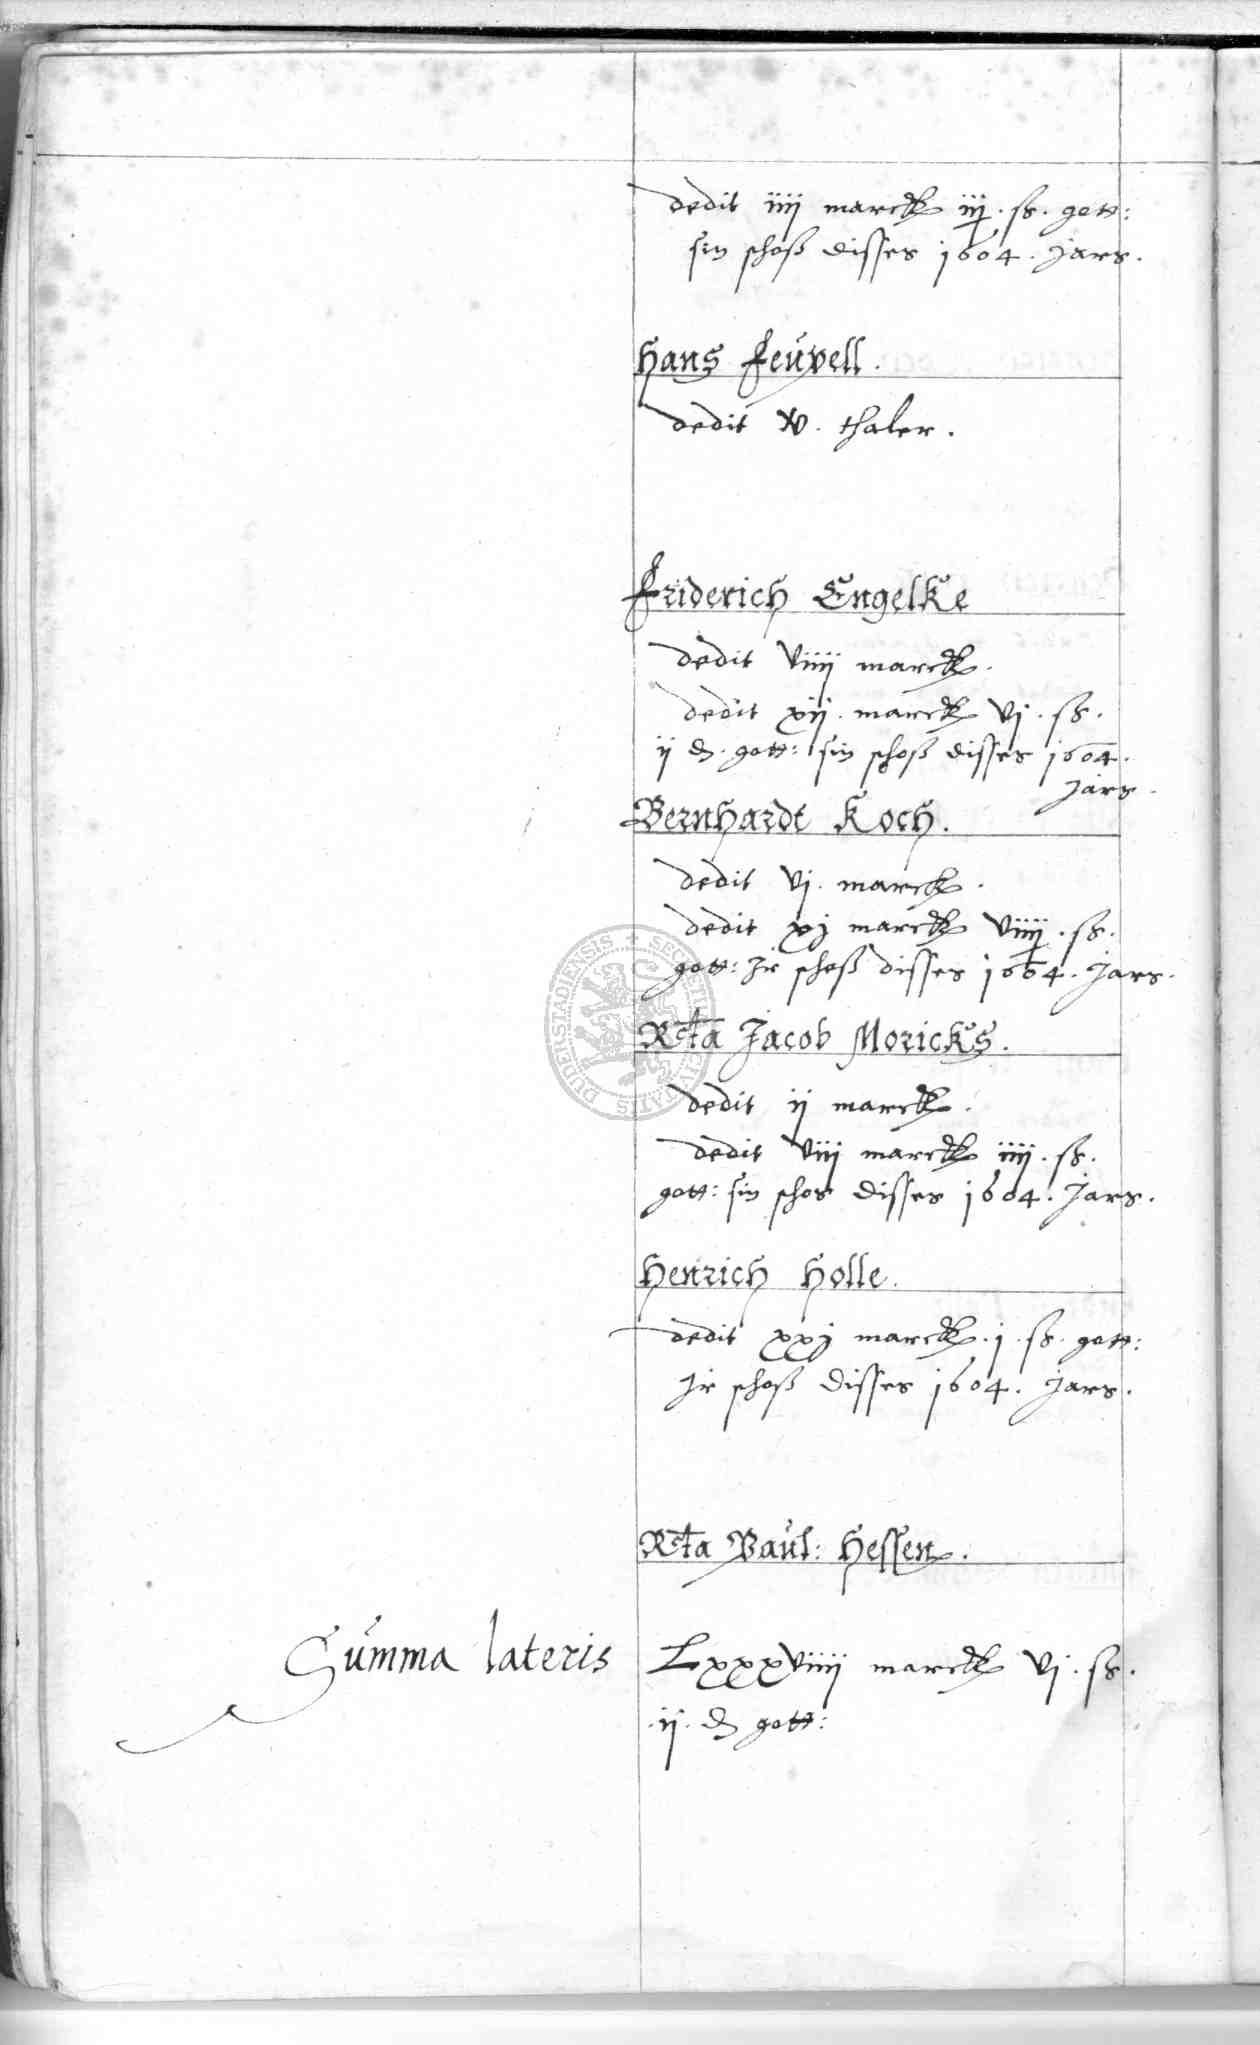 dedit iiij marck iij. ß. gott:
sin schoß disses 1604. Jars.
Hans Feüpell.
dedit v. thaler.
Friderich Engelke
dedit viiij marck.
dedit xij. marck vj. ß.
ij d. gott: sin schoß disses 1604.
Jars.
Bernhardt Koch.
dedit vj. marck.
dedit xj marck viiij. ß.
gott: Ir schoß disses 1604. Jars.
Rcta Jacob Moricks.
dedit ij marck.
dedit viij marck iiij. ß.
gott: sin schos disses 1604. Jars.
Henrich Holle.
dedit xxj marck. j. ß. gott:
Ir schoß disses 1604. Jars.
Rcta Paül: Hessen.
Sümma lateris Lxxxviiij marck vj. ß.
.ij. d gott:
SECRETU CIVITATIS DUDERSTADIENSIS